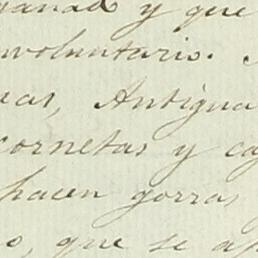 ganado y que
involuntario.
cas, Antigua
cornetas y ca
hacen gorras,
o, que se a